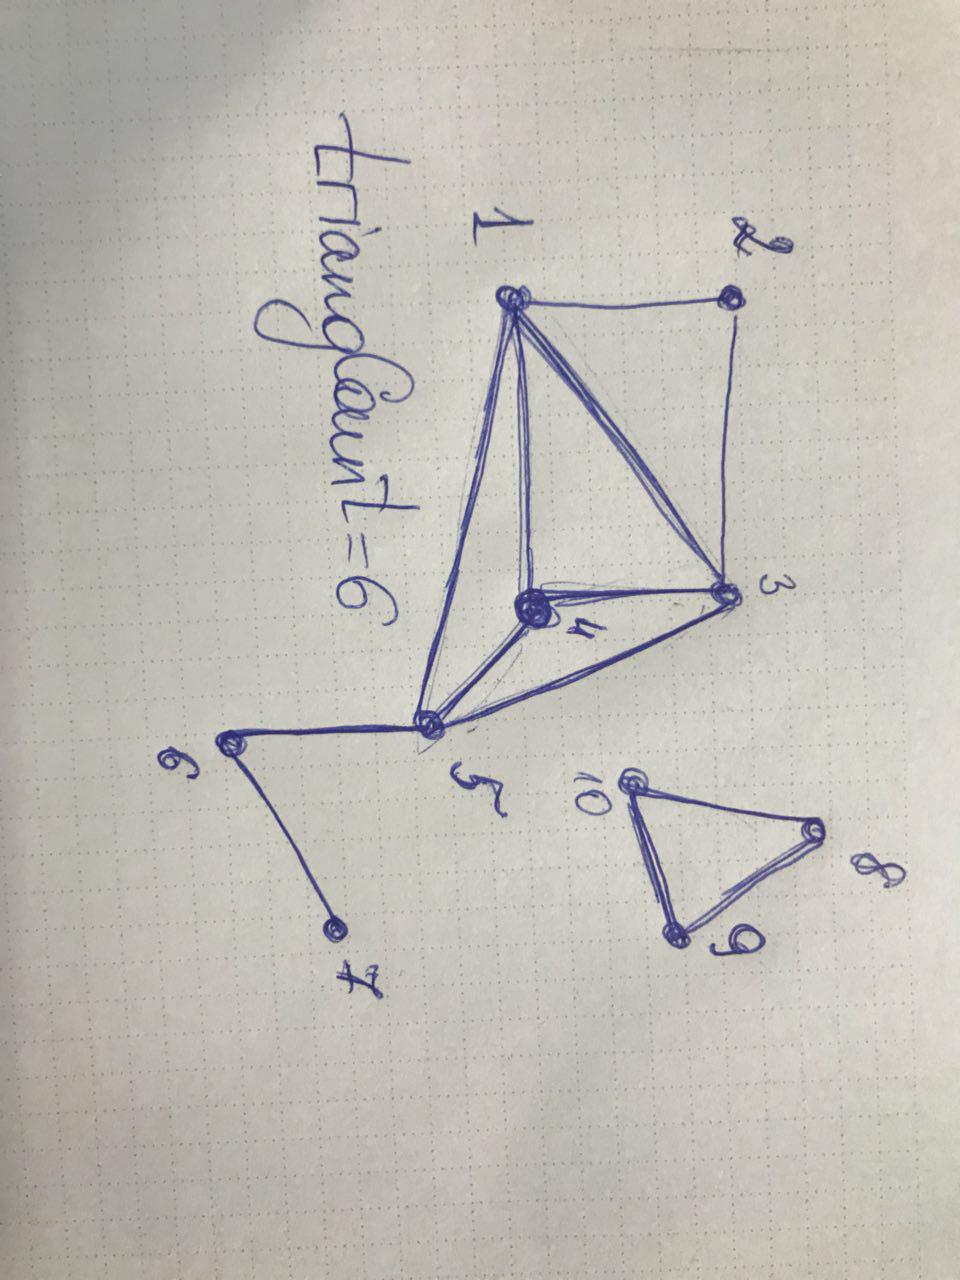 8
2
3
9
4
10
1
5
triangCount=6
7
6